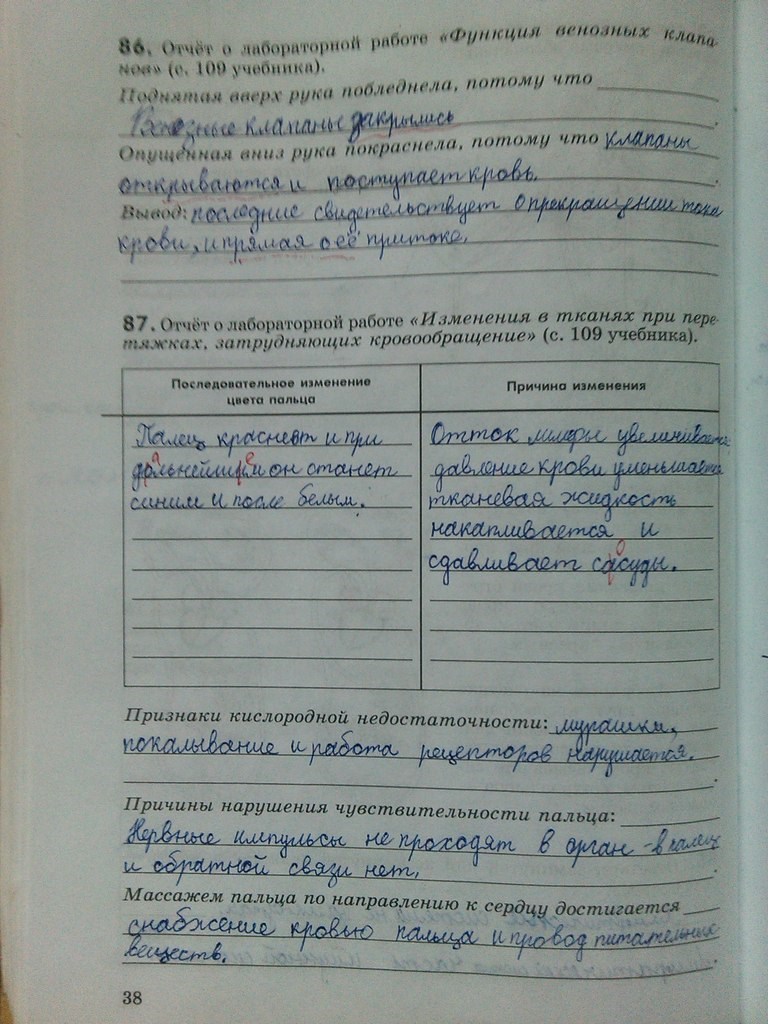 86. Отчёт о лабораторной работе «Функция венозных клапа-
нов» (с. 109 учебника).
Поднятая вверх рука побледнела, потому что
Венозные клапаны закрылись.
Опущенная вниз рука покраснела, потому что клапаны
открываются и поступает кровь.
Вывод: последние свидетельствует о прекращении тока
крови, и прямая о её притоке.
87. Отчёт о лабораторной работе «Изменения в тканях при пере-
тяжках, затрудняющих кровообращение» (с. 109 учебника).
Последовательное изменение
цвета пальца
Палец краснеет и при
дальнейшем он станет
синим и после белым.
Причина изменения
Отток лимфы увеличивается
давление крови уменьшается
тканевая жидкость
накапливается и
сдавливает сосуды.
Признаки кислородной недостаточности: мурашки,
покалывание и работа рецепторов нарушается.
Причины нарушения чувствительности пальца:
Нервные импульсы не проходят в орган - в палец
и обратной связи нет.
Массажем пальца по направлению к сердцу достигается
снабжение кровью пальца и провод питательных
веществ.
38